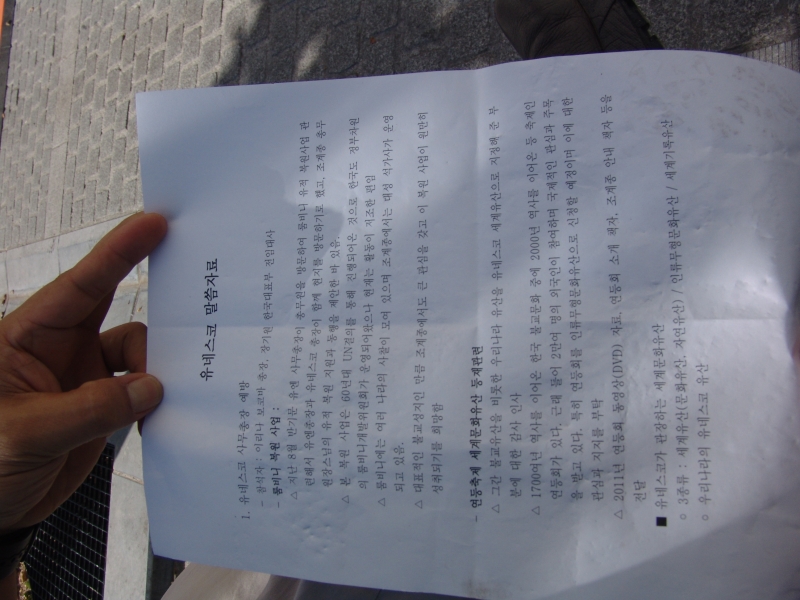 유네스코 말씀자료
1. 유네스코 사무총장 예방
- 참석자 : 이리나 보코바 총장, 장기원 한국대표부 전임대사
- 룸비니 복원 사업 :
△ 지난 8월 반기문 유엔 사무총장이 총무원을 방문하여 룸비니 유적 복원사업 관
련해서 유엔총장과 유네스코 총장이 함께 현지를 방문하기로 했고, 조계종 총무
원장스님의 유적 복원 지원과 동행을 제안한 바 있음.
△ 본 복원 사업은 60년대 UN결의를 통해 진행되어온 것으로 한국도 정부차원
의 룸비니개발위원회가 운영되어왔으나 현재는 활동이 저조한 편임
△ 룸비니에는 여러 나라의 사찰이 모여 있으며 조계종에서는 대성 석가사가 운영
되고 있음.
△ 대표적인 불교성지인 만큼 조계종에서도 큰 관심을 갖고 이 복원 사업이 원만히
성취되기를 희망함
- 연등축제 세계문화유산 등재관련
△ 그간 불교유산을 비롯한 우리나라 유산을 유네스코 세계유산으로 지정해 준 부
분에 대한 감사 인사
△ 1700여년 역사를 이어온 한국 불교문화 중에 2000년 역사를 이어온 등 축제인
연등회가 있다. 근래 들어 2만여 명의 외국인이 참여하며 국제적인 관심과 주목
을 받고 있다. 특히 연등회를 인류무형문화유산으로 신청할 예정이며 이에 대한
관심과 지지를 부탁
△ 2011년 연등회 동영상(DVD) 자료, 연등회 소개 책자, 조계종 안내 책자 등을
전달
■ 유네스코가 관장하는 세계문화유산
○ 3종류 : 세계유산(문화유산, 자연유산) / 인류무형문화유산 / 세계기록유산
○ 우리나라의 유네스코 유산